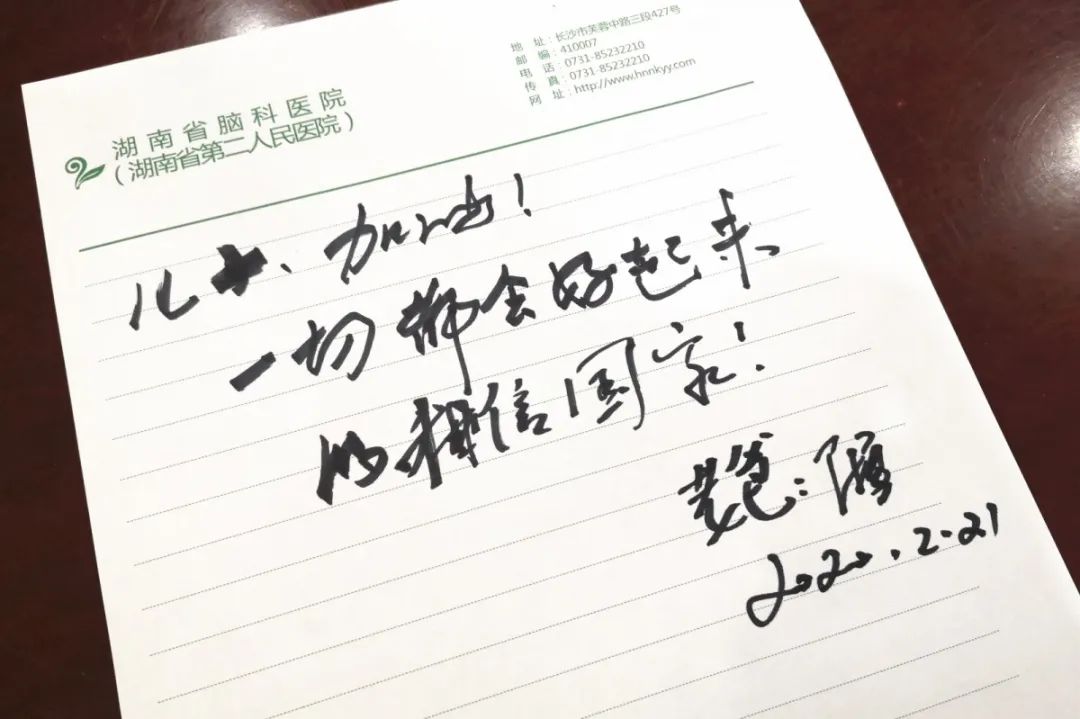 湖南省脑科医院
（湖南省第二人民医院）
地 址：长沙市芙蓉中路三段427号
邮 编：410007
电 话：0731-85232210
传 真：0731-85232210
网 址：http://www.hnnkyy.com
儿子、加油！
一切都会好起来
的相信国家！
老爸：
2020.2.21